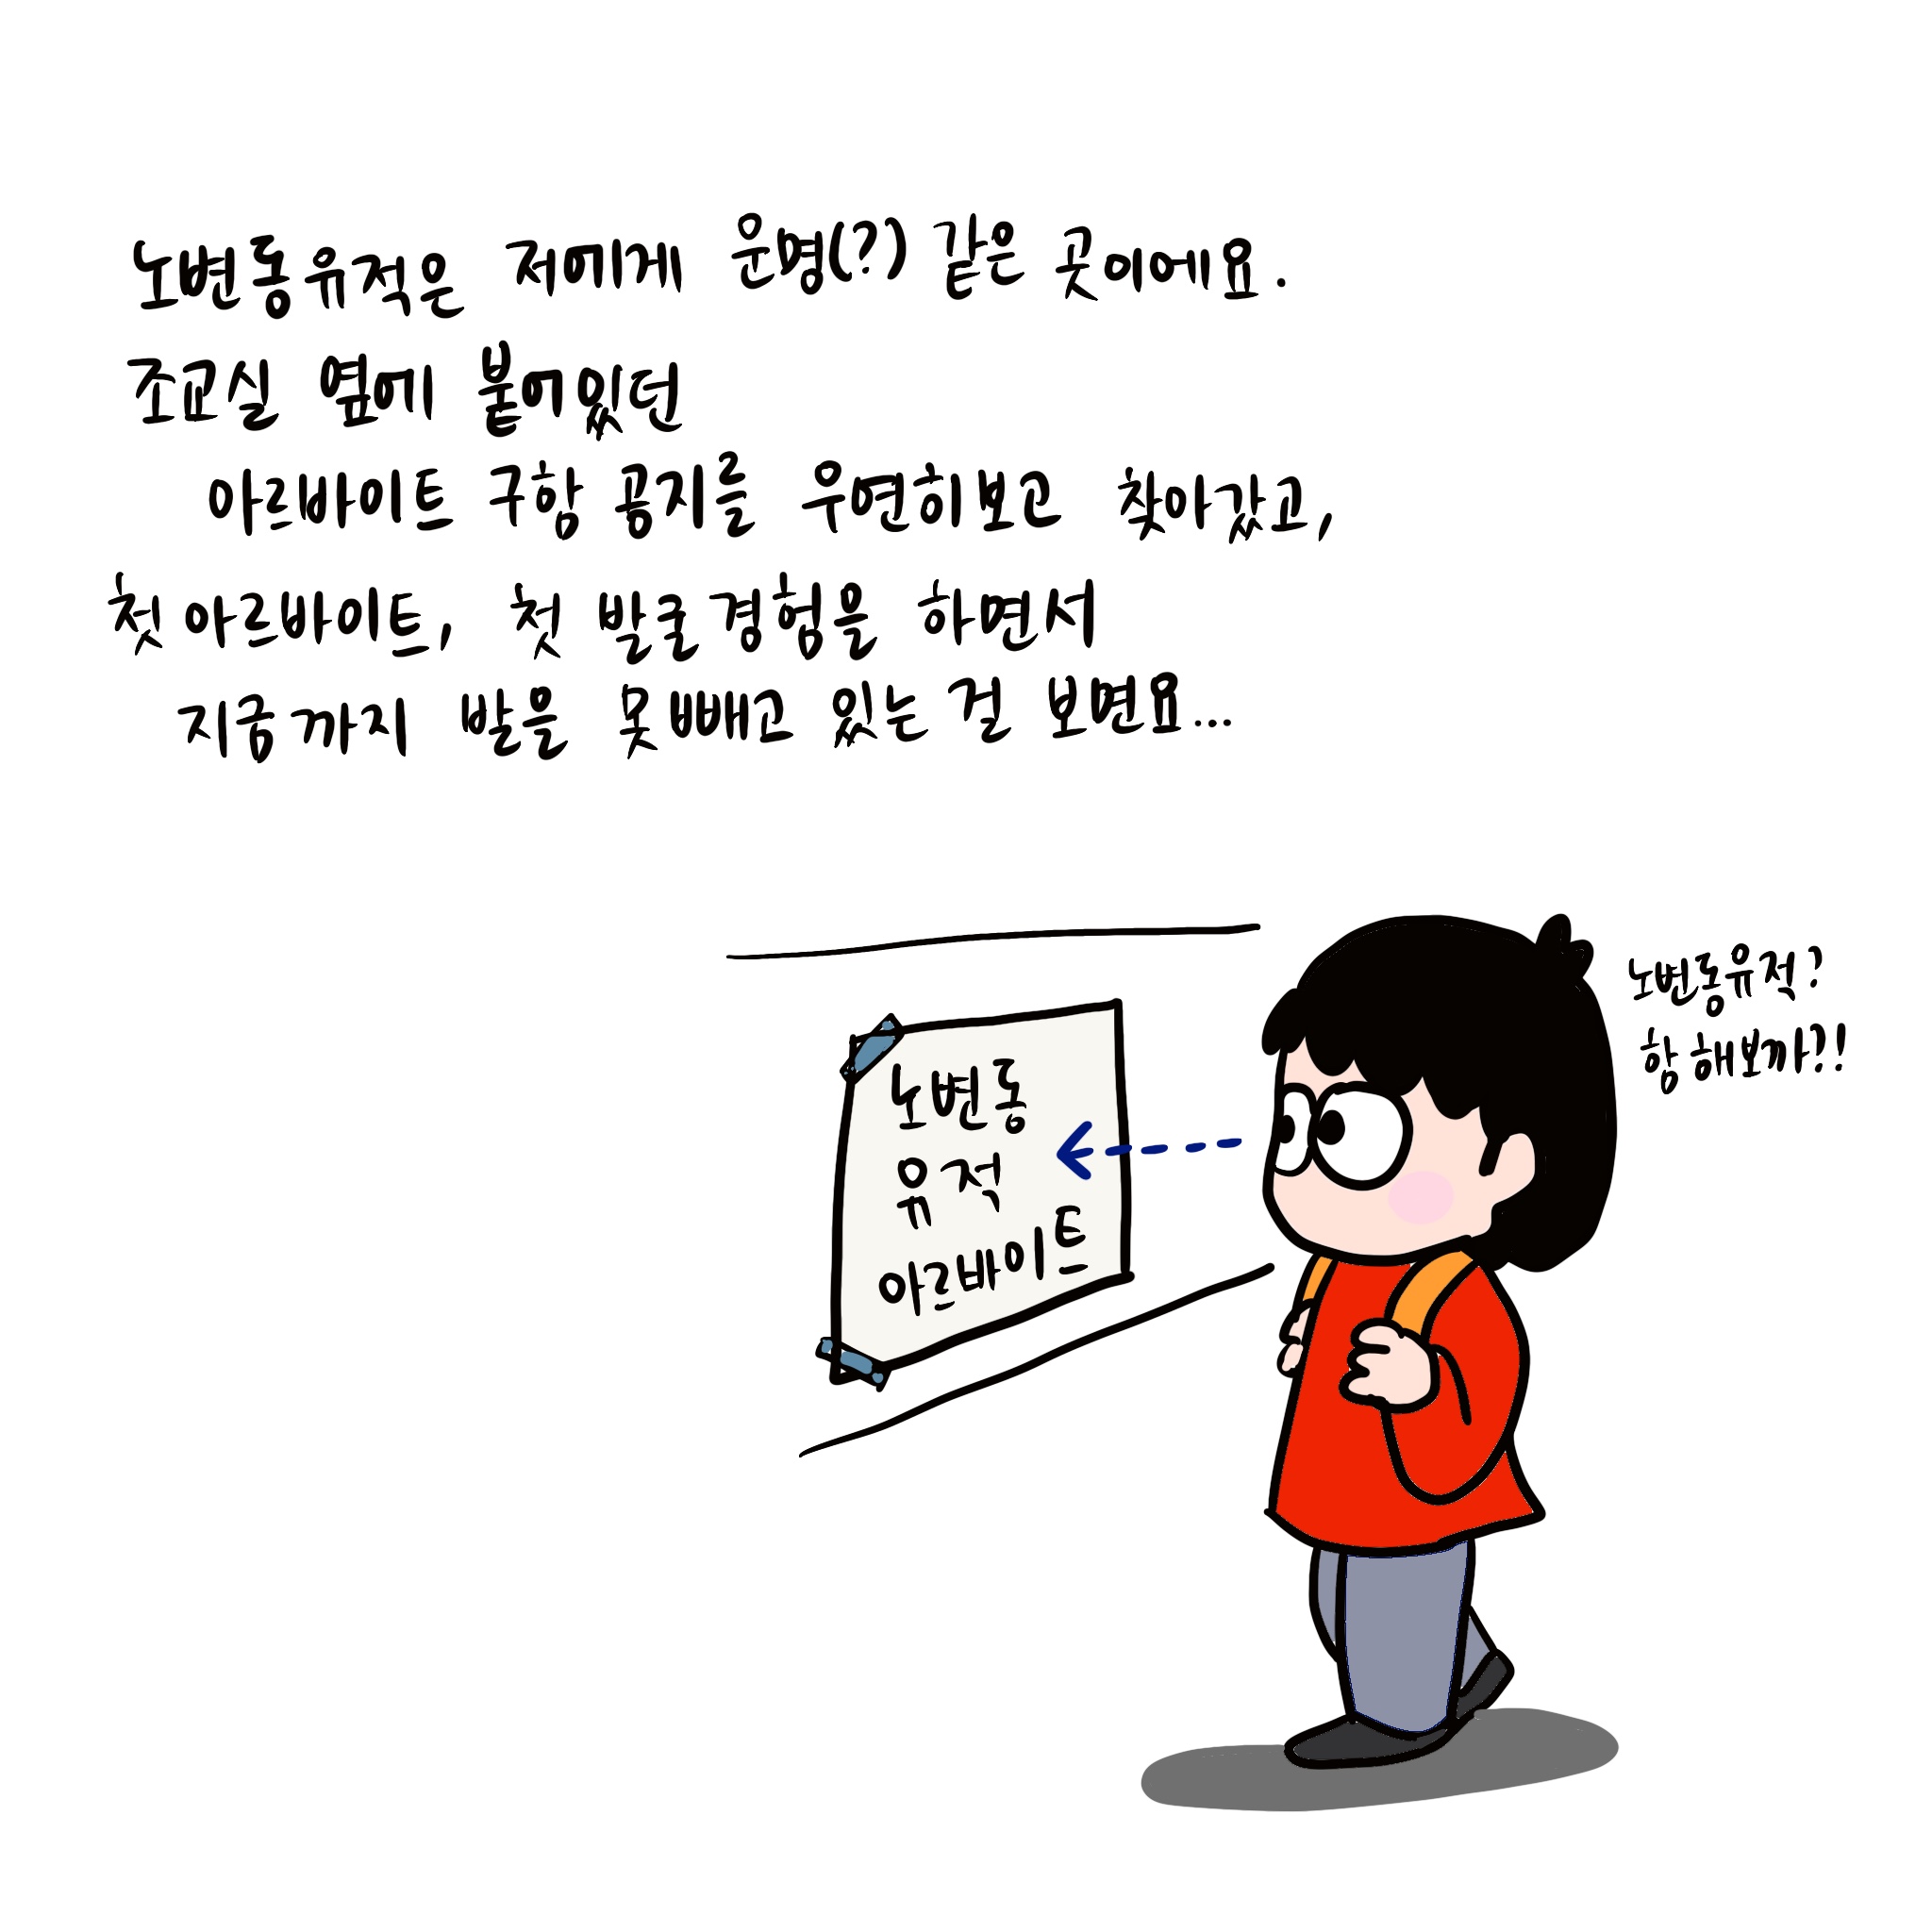 노변동유적은 저에게 운명(?) 같은 곳이에요.
조교실 옆에 붙어있던
아르바이트 구함 공지를 우연히보고 찾아갔고,
첫 아르바이트, 첫 발굴경험을 하면서
지금까지 발을 못빼고 있는 걸 보면요...
노변동유적?
함 해보까?!
노변동
유적
아르바이트